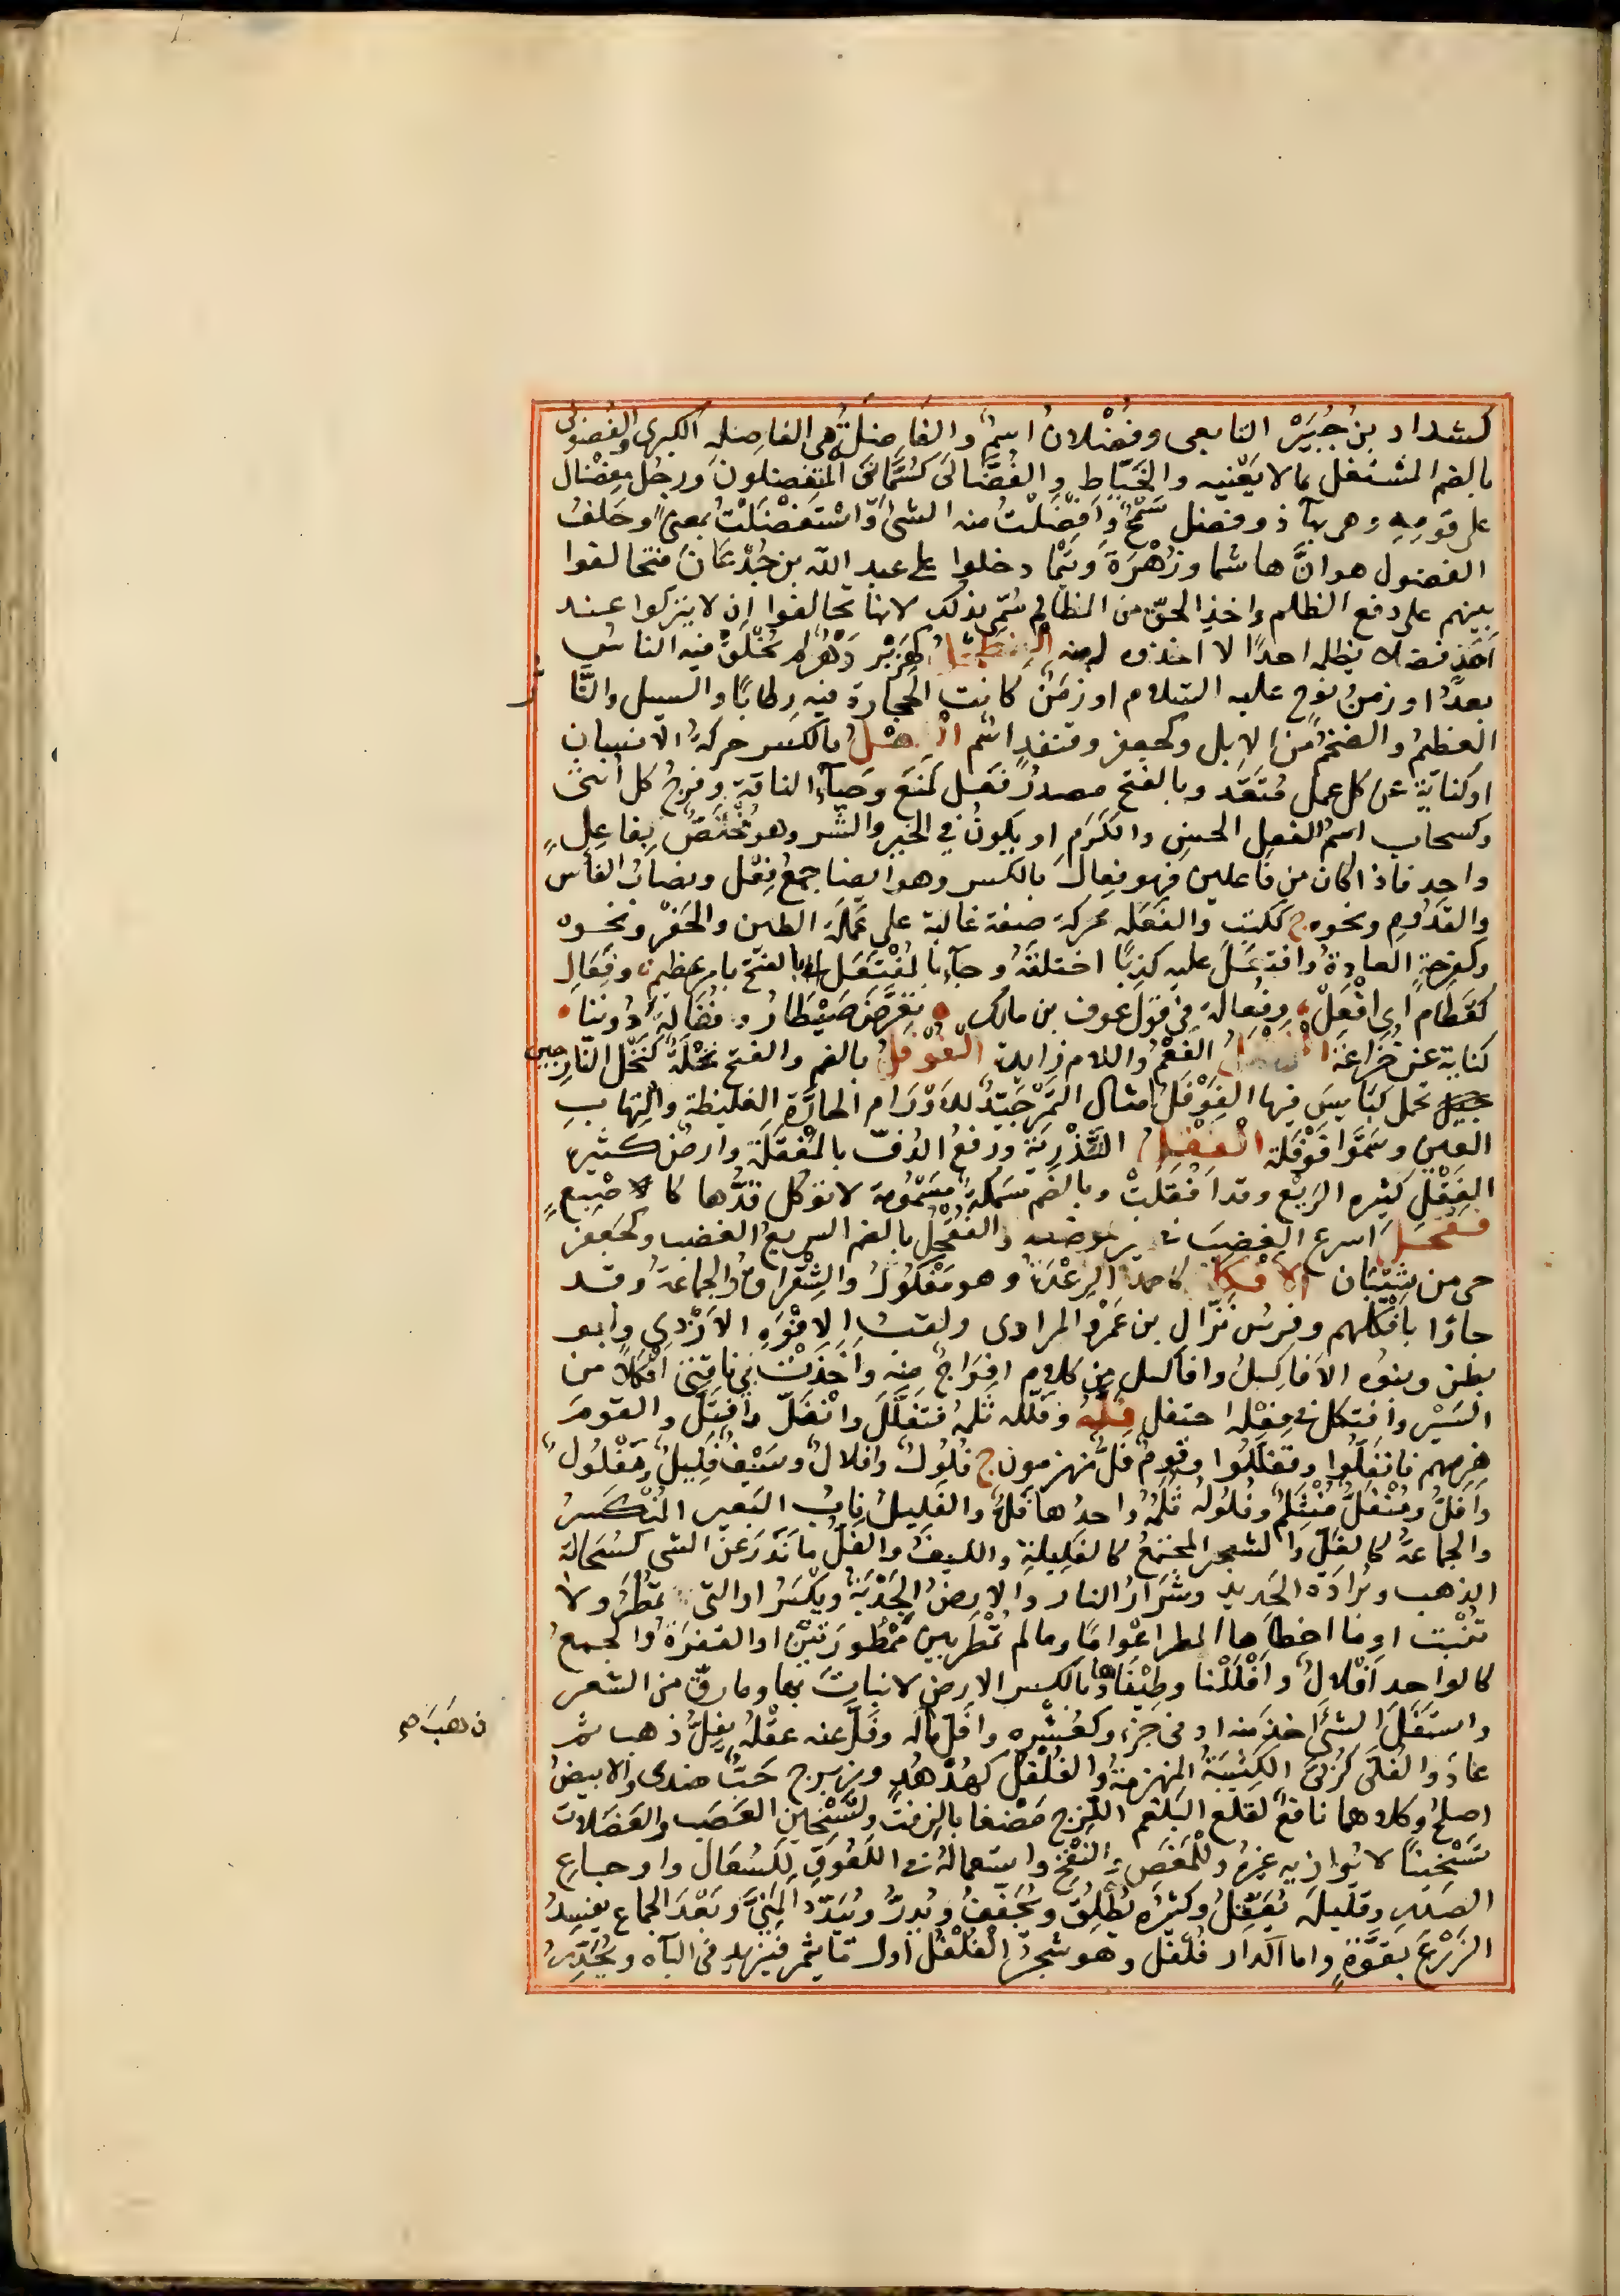 كشداد بن جُبَيْر التابعى وفُضْلان اسمٌ والفاضلة هى الفاصله الكبرى والفضولى
بالضم المشتغل بما لا يَعْنيه والخَيّاط والفُضَّالَى كسُمَّانَى المتفضلون ورجل مِفْضال
على قومه وهى بهآء ذو فضل سَمْحٌ وأفضَلْتُ منه الشئ واستَفْضَلْتُ بمعنىً وحَلفُ
الفضول هو انَّ هاشما وزُهْرَة وتَيْمًا دخلوا على عبد الله بن جُدْعَانَ فتحالفوا
بينهم على دفع الظلم واخذِ الحقّ من الظالم سُمّى بذلك لانها تحالفوا ان لا يتركوا عند
احَدٍ فضلا يظلمه احدًا الا اخذوه له منه الفِطَحْلُ كهِزَبْر دَهْرٌ لم يُخْلَقْ فيه الناسُ
بعدُ او زمنُ نوح عليه السلام او زمَنٌ كانت الحجارة فيه رِطابًا والسيل والتَّارّ
العظيمُ والضخمُ من الابل وكجعفر وقنفد اسم الفِعْلُ بالكسر حركةُ الانسان
او كناية عن كل عمل مُتَعَدٍّ وبالفتح مصدرُ فعَل كمنَعَ وحَيآءُ الناقة وفرجُ كل أنثى
وكسحاب اسمُ الفعلِ الحسن والكَرَم او يكونُ فى الخير والشّر وهو مُخَلَّصٌ بفاعِلٍ
واحد فاذا كان من فاعلين فهو فِعال بالكسر وهو ايضا جمعُ فِعْل ونصابُ الفاس
والقدُّوم ونحوه ج ككتب والفَعَلة محركة صفة غالبة على عَمَلَة الطين والحَفْر ونحوه
وكفرحة العادةُ وافتعَلَ عليه كذبًا اختلقَهُ وجآء بالمُفْتَعَل بالفتح بامر عظيم وفَعَالِ
كقَطَام أى افْعَلْ، وفُعالة فى قول عوف بن مالك ۰ تعَرَّضَ ضَيْطَارُ وفُعَالَةَ دوننا ۰
كناية عن خزاعة الفَعْمَلُ الفَعْمُ واللام زايدة الفَوْفَلُ بالضم والفتح نخْلَةٌ كنَخْل النارجيل
تحمل كبَايِسَ فيها الفَوْفَلُ امثال التمرْ جَيّدٌ للاوْرَام الحارّة الغليظة والْتِهابِ
العين وسَمَّوْا فَوْفَلة الفَقْلُ التَّذْرِيَة ورفعُ الدُقّ بالمُفْقَلَة وارضٌ كثيرة
الفَقْل كثيره الرَيْع وقد أفقلَتْ وبالضم سَمكةٌ مَسْمُومة لا توكل قَدُّها كاصْبَعٍ
فَقْحَلَ اسرع الغضبَ فى غير موضعه والفُقْحُلُ بالضم السريعُ الغضب وكجعفر
حى من شَيْبَان الأفكَلُ كاحمدَ الرِعْدَة وهو مَفْكُولٌ والشِقْرَاقُ والجماعة وقد
جاؤا بافكلهم وفرسُ نَزّال بن عَمْرو المرادى ولقبُ الافْوَهِ الاَزْدى وأبو
بطن وبنوه الاَفَاكِلُ وافاكيل من كلام افواجٌ منه وأخذَتْ بى ناقتى أفْكَلاً من
السَيْر وافتكل فى فِعْله احتفل فَلَّهُ وفلّله ثَلَمَهُ فتَفَلَّلَ وانْفَلّ وافتَلّ والقومَ
هزمهم فانْفَلّوا وتفَلَّلوا وقومٌ فَلٌّ منهزمون ج فُلُولٌ وافلالٌ وسَيْفٌ فَلِيلٌ ومَفْلُولٌ
وأفَلُّ ومُنْفَلٌّ مُنْثَلِمٌ وفُلُولُهُ ثُلَمُهُ واحدُها فَلٌّ والفَلِيلُ نابُ البَعير المُنْكسرُ
والجماعةُ كالفَلّ والشعر المجتمعُ كالفَلِيلةِ والليفُ والفَلُّ ما نَدَرَ عن الشى كسُحَالة
الذهب وبُرَادَة الحديد وشَرَارُ النار والارضُ الجَدْبَةُ ويكْسَرُ او التى تمْطَرُ ولا
تُنْبِت او ما اخطاها المطر اعْوامًا وما لم تُمْطَر بين مَمْطُورَتَيْن او القفرَةُ والجمعُ
كالواحد افلالٌ وأفْلَلْنا وطِئْناها وبالكسر الارض لا نباتَ بها وما رقّ من الشعر
واستَفَلّ الشئ اخذ منه ادنى جزء وكعُشْرِه وافَلَّ ماله وفَلَّ عنه عقْلُه يفِلُّ ذهب ثم
عاد والفُلَّى كرُبَّى الكتيبَةُ المنهزمة والفُلْفُل كهُدْهُد وزبرج حَبٌّ هندى والابيضُ
اصلحُ وكلاهما نافعٌ لقلع البَلغم اللّزِج مَضْغا بالزِفت ولتَسْخين العَصَب والعَضَلات
تَسْخينًا لا يُوازيه غيرُه وللمَغَص والنفْخ واستعماله فى اللَعُوق للسُعَال واوجاع
الصدر وقليلُه يُعَقِّلُ وكثيرُه يُطْلِقُ ويُجَفّفُ ويُدِرُّ ويُبَدّدُ المَنِىَّ وبَعْدَ الجماع يفسِدُ
الزَرْعَ بقوَّةٍ واما الدار فُلْفُل وهو شجرُ الفُلْفُل اول ما يثمر فيَزيدُ فى الباه ويُحَدّرُ